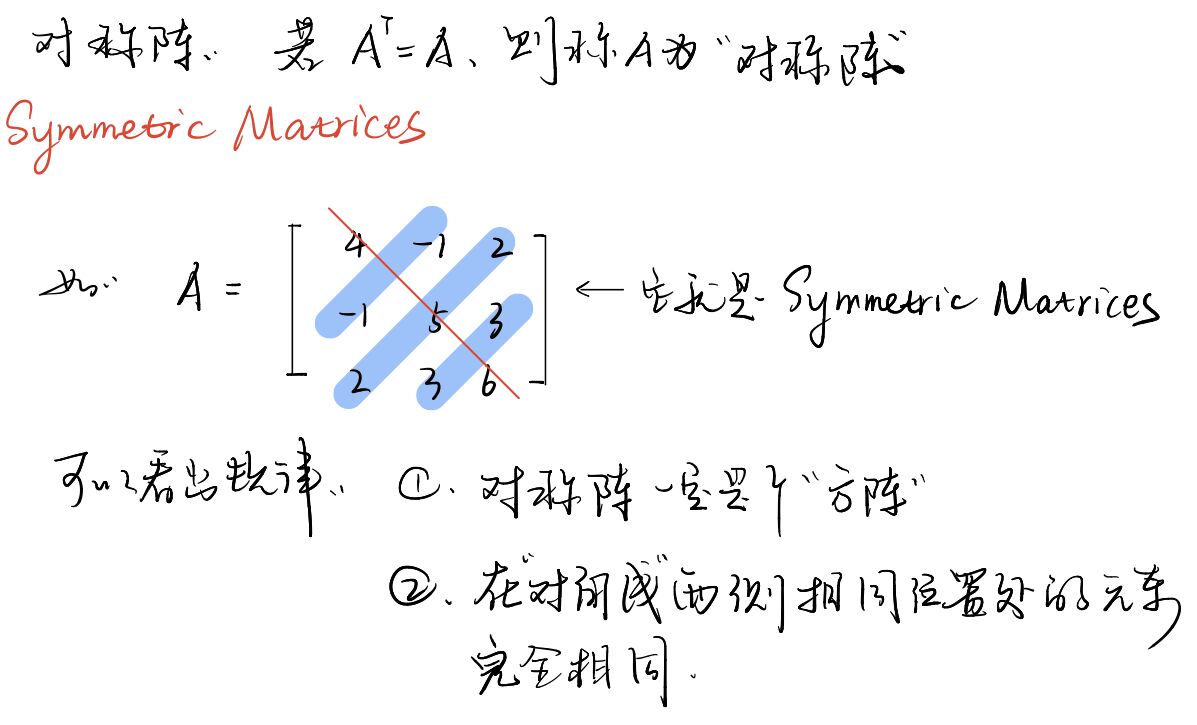 对称阵:. 若 Aᵀ=A、则称A为"对称阵"
Symmetric Matrices
4 -1 2
如:. A = -1 5 3 ← 它就是 Symmetric Matrices
2 3 6
可以看出规律:. ①. 对称阵一定是个"方阵"
②. 在"对角线"两侧相同位置处的元素
完全相同.